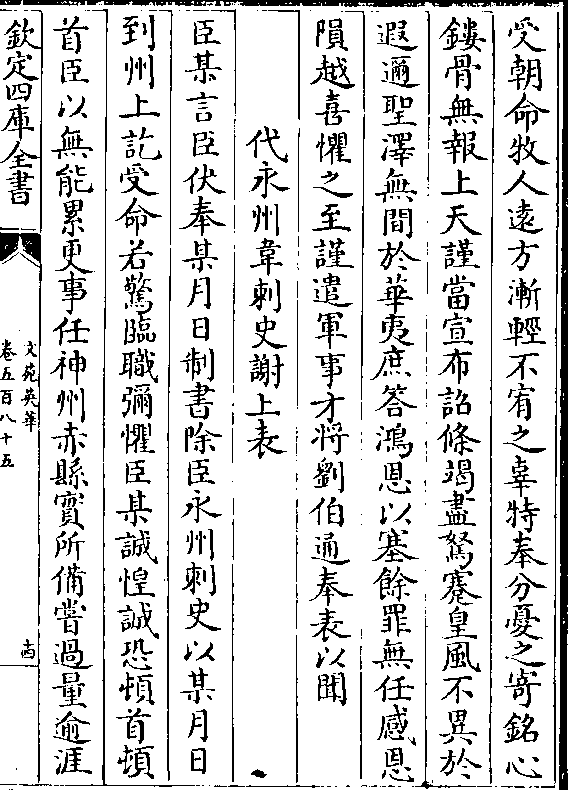 受朝命牧人遠方漸輕不宥之辜特奉分憂之寄銘心
鏤骨無報上天謹當宣布詔條竭盡駑蹇皇風不異於
遐邇聖澤無間於華夷庶答鴻恩以塞餘罪無任感恩
隕越喜懼之至謹遣軍事才將劉伯通奉表以聞
代永州韋刺史謝上表
臣某言臣伏奉某月日制書除臣永州刺史以某月日
到州上訖受命若驚臨職彌懼臣某誠惶誠恐頓首頓
首臣以無能累更事任神州赤縣實所備嘗過量逾涯
欽定四庫全書
文苑英華
卷五百八十五